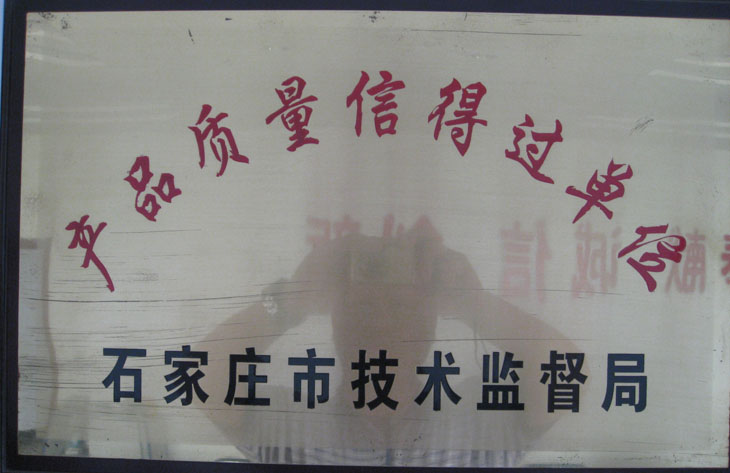 产品质量信得过单位
石家庄市技术监督局